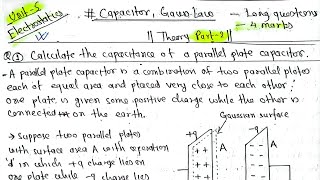 Unit-5
Electrostatics
# Capacitor, Gauss Law - Long questions
- 4 marks
|| Theory Part-2 ||
Q.① Calculate the capacitance of a parallel plate capacitor.
- A parallel plate capacitor is a combination of two parallel plates
each of equal area and placed very close to each other.
one plate is given some positive charge while the other is
connected on the earth.
Gaussian surface
→ suppose two parallel plates
with surface area A with seperation
'd' in which +q charge lies on
one plate while -q charge lies
+q
A
-q
+ +